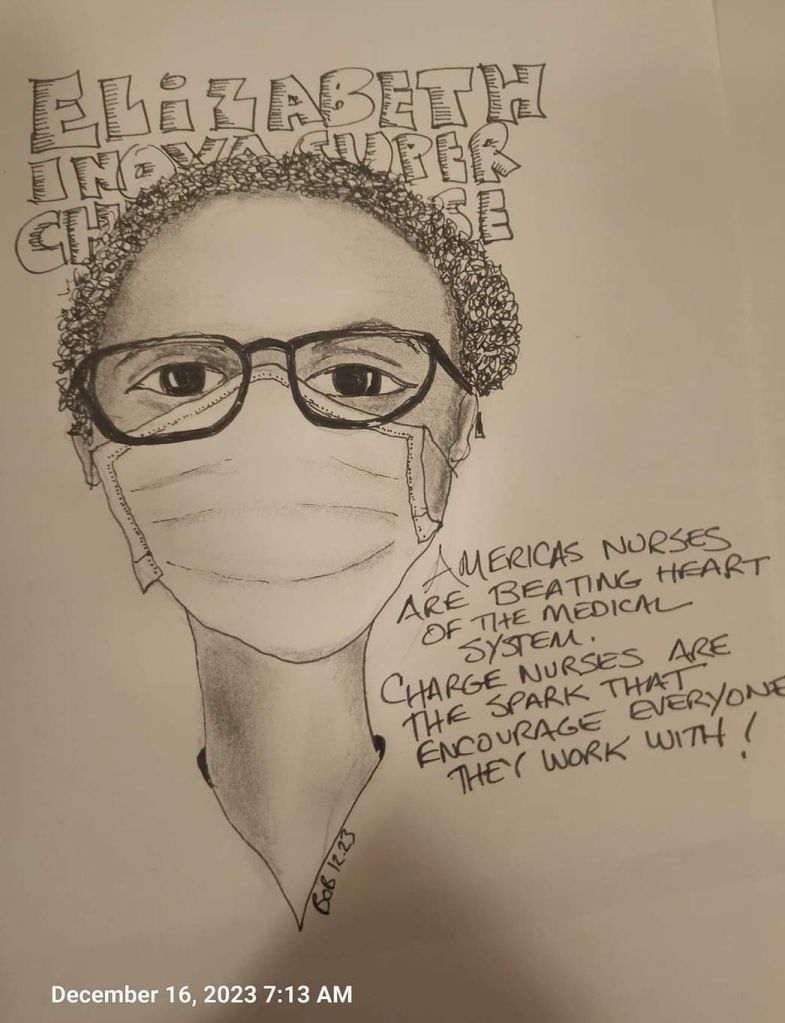 ELIZABETH
INOVA SUPER
CH SE
AMERICAS NURSES
ARE BEATING HEART
OF THE MEDICAL
SYSTEM.
CHARGE NURSES ARE
THE SPARK THAT
ENCOURAGE EVERYONE
THEY WORK WITH!
BOB 12.23
December 16, 2023 7:13 AM